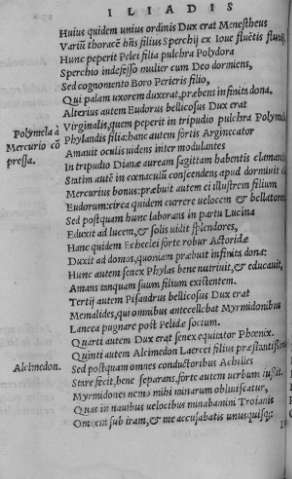 ILIADIS
Huius quidem unius ordinis Dux erat Menestheus
Variũ thoracẽ hñs filius Sperchij ex Ioue fluẽtis
Hunc peperit Pelei filia pulchra Polydora
Sperchio indefesso mulier cum Deo dormiens,
Sed cognomento Boro Perieris filio,
Qui palam uxorem duxerat, præbens infinita dona,
Alterius autem Eudorus bellicosus Dux erat
Polymela à
Mercurio cõ
pressa.
Virginalis, quem peperit in tripudio pulchra
Phylandis filia: hanc autem fortis Arginccator
Amauit oculis uidens inter modulantes
In tripudio Dianæ auream sagittam habentis
Statim autẽ in cœnaculũ conscendens apud dormiuit
Mercurius bonus: præbuit autem ei illustrem filium
Eudorum: circa quidem currere uelocem &
Sed postquam hunc laborans in partu Lucina
Eduxit ad lucem, & solis uidit splendores,
Hanc quidem Echeclei forte robur Actoridæ
Duxit ad domus, quoniam præbuit infinita dona:
Hunc autem senex Phylas bene nutriuit, & educauit,
Amans tanquam suum filium existentem.
Tertij autem Pisandrus bellicosus Dux erat
Memalides, qui omnibus antecellebat Myrmidonibus
Lancea pugnare post Pelidæ socium.
Quarti autem Dux erat senex equitator Phœnix.
Quinti autem Alcimedon Laercei filius
Alcimedon.
Sed postquam omnes conductoribus Achilles
Stare fecit, bene separans, forte autem uerbum
Myrmidones nemo mihi minarum obliuiscatur,
Quas in nauibus uelocibus minabamini Troianis
Omnem sub iram, & me accusabatis unusquisq;: